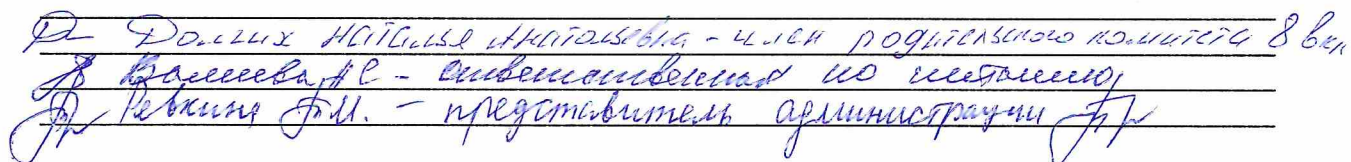 Долгих Наталья Анатольевна - член родительского комитета 8 в кл
Валиева А С - ответственная по питанию
Ревкина Т.М. - представитель администрации